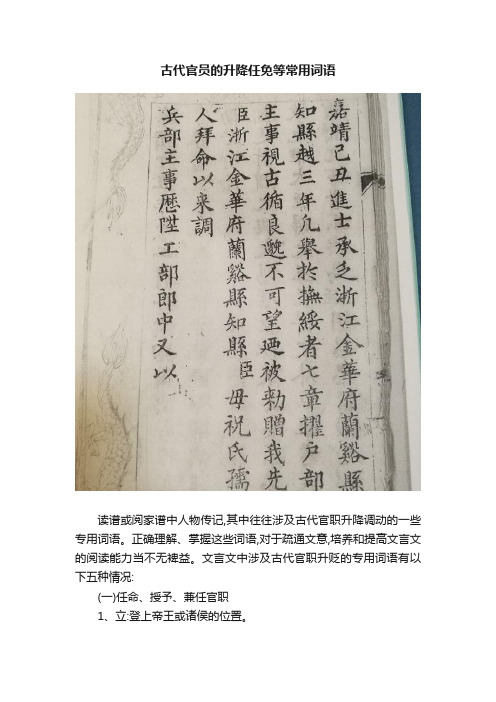 古代官员的升降任免等常用词语
嘉靖己丑進士承乏浙江金華府蘭谿縣
知縣越三年凡舉於撫綏者七章擢戶部
主事視古循良邈不可望廼被勑贈我先
臣浙江金華府蘭谿縣知縣臣母祝氏孺
人拜命以来調
兵部主事歷陞工部郎中又以
读谱或阅家谱中人物传记,其中往往涉及古代官职升降调动的一些
专用词语。正确理解、掌握这些词语,对于疏通文意,培养和提高文言文
的阅读能力当不无裨益。文言文中涉及古代官职升贬的专用词语有以
下五种情况:
(一)任命、授予、兼任官职
1、立:登上帝王或诸侯的位置。